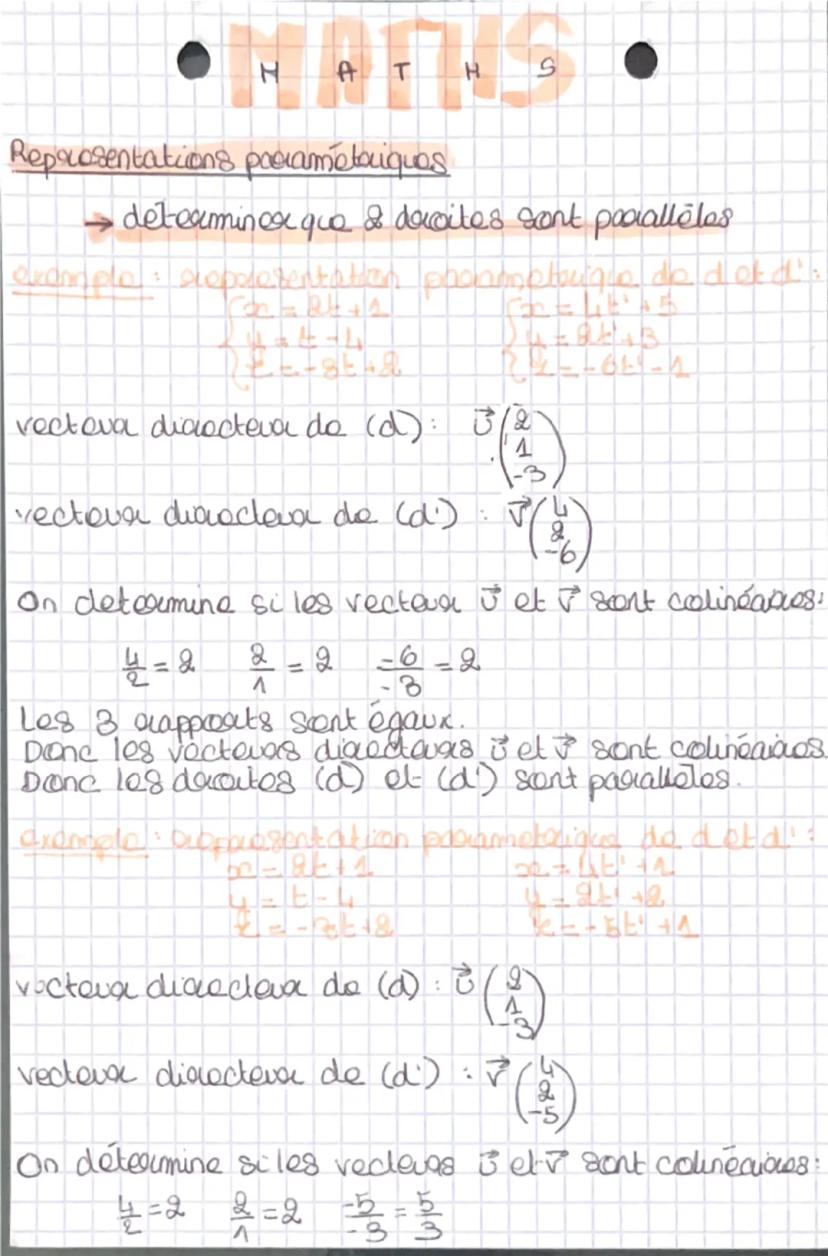 MATHS
M A T H S
Représentations paramétriques
→ déterminer que 2 droites sont parallèles
exemple : représentation paramétrique de d et d' :
{ x = 2t + 1 { x = 4t' + 5
{ y = t - 4 { y = 2t' + 3
{ z = -3t + 2 { z = -6t' - 1
vecteur directeur de (d) : u⃗ (2
1
-3)
vecteur directeur de (d') : v⃗ (4
2
-6)
On determine si les vecteur u⃗ et v⃗ sont colinéaires :
4/2 = 2 2/1 = 2 -6/-3 = 2
Les 3 rapports sont égaux.
Donc les vecteurs directeurs u⃗ et v⃗ sont colinéaires
Donc les droites (d) et (d') sont parallèles.
exemple : représentation paramétrique de d et d' :
x = 2t + 1 x = 4t' + 1
y = t - 4 y = 2t' + 2
z = -3t + 2 z = -5t' + 1
vecteur directeur de (d) : u⃗ (2
1
-3)
vecteur directeur de (d') : v⃗ (4
2
-5)
On détermine si les vecteurs u⃗ et v⃗ sont colinéaires :
4/2 = 2 2/1 = 2 -5/-3 = 5/3